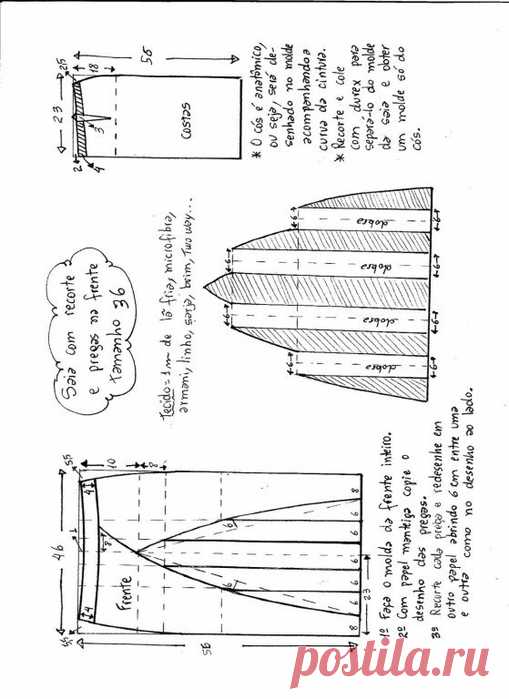 Saia com recorte
e pregas na frente
tamanho 36
Tecido = 1 m de lã fria, microfibra,
armani, linho, jeans, brim, two way...
* O cós é anatômico,
ou seja, será de-
senhado no molde
acompanhando a
curva da cintura.
* Recorte e cole
com durex para
separá-lo do molde
da saia e obter
um molde só do
cós.
56
25
18
23
3
2
4
costas
6
6
6
6
6
6
6
6
dobra
dobra
dobra
dobra
46
55
10
8
1
4
4
8
Frente
6
6
6
6
8
6
6
6
6
8
23
56
1º Faça o molde da frente inteiro.
2º Com papel manteiga copie o
desenho das pregas.
3º Recorte cada prega e redesenhe em
outro papel abrindo 6 cm entre uma
e outra como no desenho ao lado.
postila.ru